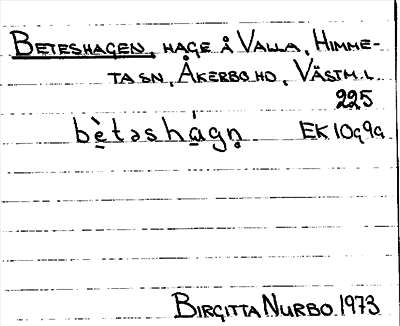 BETESHAGEN, HAGE Å VALLA, HIMME-
TA SN, ÅKERBO HD, VÄSTM.L
225
bè̱təshá̱gn̥ EK 10g9a
BIRGITTA NURBO 1973